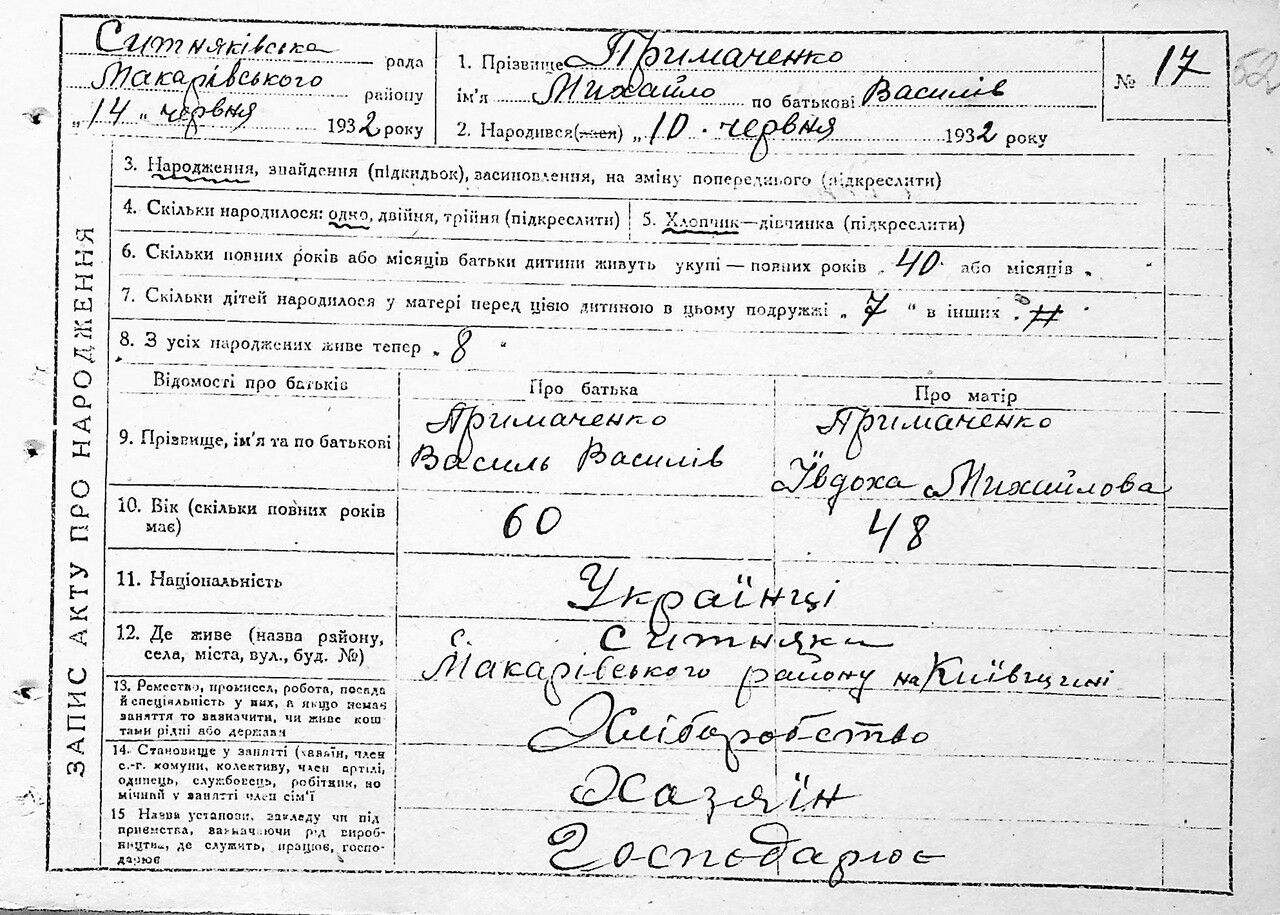 Ситняківська рада
Макарівського району
„14 „ червня 1932 року
1. Прізвище Примаченко
ім'я Михайло по батькові Василів
2. Народився(лася) „10 . червня 1932 року
№ 17
62
ЗАПИС АКТУ ПРО НАРОДЖЕННЯ
3. Народження, знайдення (підкидьок), засиновлення, на зміну попереднього (підкреслити)
4. Скільки народилося: одно, двійня, трійня (підкреслити)
5. Хлопчик—дівчинка (підкреслити)
6. Скільки повних років або місяців батьки дитини живуть укупі — повних років „ 40 . або місяців „ “
7. Скільки дітей народилося у матері перед цією дитиною в цьому подружжі „ 7 “ в інших
8. З усіх народжених живе тепер „ 8 “
Відомості про батьків
Про батька
Про матір
9. Прізвище, ім'я та по батькові
Примаченко
Василь Василів
Примаченко
Ївдоха Михайлова
10. Вік (скільки повних років
має)
60
48
11. Національність
Українці
12. Де живе (назва району,
села, міста, вул., буд. №)
с. Ситняки
Макарівського району на Київщині
13. Ремество, промисел, робота, посада
й спеціяльність у них, а якщо немає
заняття то зазначити, чи живе кош
тами рідні або держави
Хліборобство
14. Становище у занятті (хазяїн, член
с.-г. комуни, колективу, член артілі,
одинець, службовець, робітник, по
мічний у занятті член сім'ї
Хазяїн
15 Назва установи, закладу чи під
приємства, зазначаючи рід вироб-
ництва, де служить, працює, госпо-
дарює
Господарює